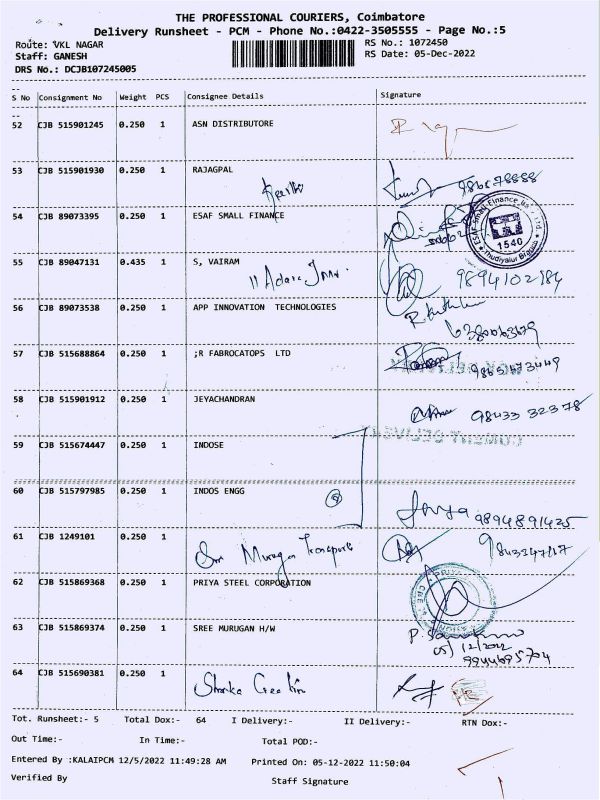 THE PROFESSIONAL COURIERS, Coimbatore
Delivery Runsheet - PCM - Phone No.:0422-3505555 - Page No.:5
Route: VKL NAGAR RS No.: 1072450
Staff: GANESH RS Date: 05-Dec-2022
DRS No.: DCJB107245005
S No Consignment No Weight PCS Consignee Details Signature
52 CJB 515901245 0.250 1 ASN DISTRIBUTORE
53 CJB 515901930 0.250 1 RAJAGPAL
54 CJB 89073395 0.250 1 ESAF SMALL FINANCE
1540
55 CJB 89047131 0.435 1 S, VAIRAM
9894102184
56 CJB 89073538 0.250 1 APP INNOVATION TECHNOLOGIES
57 CJB 515688864 0.250 1 ;R FABROCATOPS LTD
58 CJB 515901912 0.250 1 JEYACHANDRAN
98433 32378
59 CJB 515674447 0.250 1 INDOSE
60 CJB 515797985 0.250 1 INDOS ENGG
9894891425
61 CJB 1249101 0.250 1
62 CJB 515869368 0.250 1 PRIYA STEEL CORPORATION
63 CJB 515869374 0.250 1 SREE MURUGAN H/W
05/12/2022
9944695704
64 CJB 515690381 0.250 1
Tot. Runsheet:- 5 Total Dox:- 64 I Delivery:- II Delivery:- RTN Dox:-
Out Time:- In Time:- Total POD:-
Entered By :KALAIPCM 12/5/2022 11:49:28 AM Printed On: 05-12-2022 11:50:04
Verified By Staff Signature